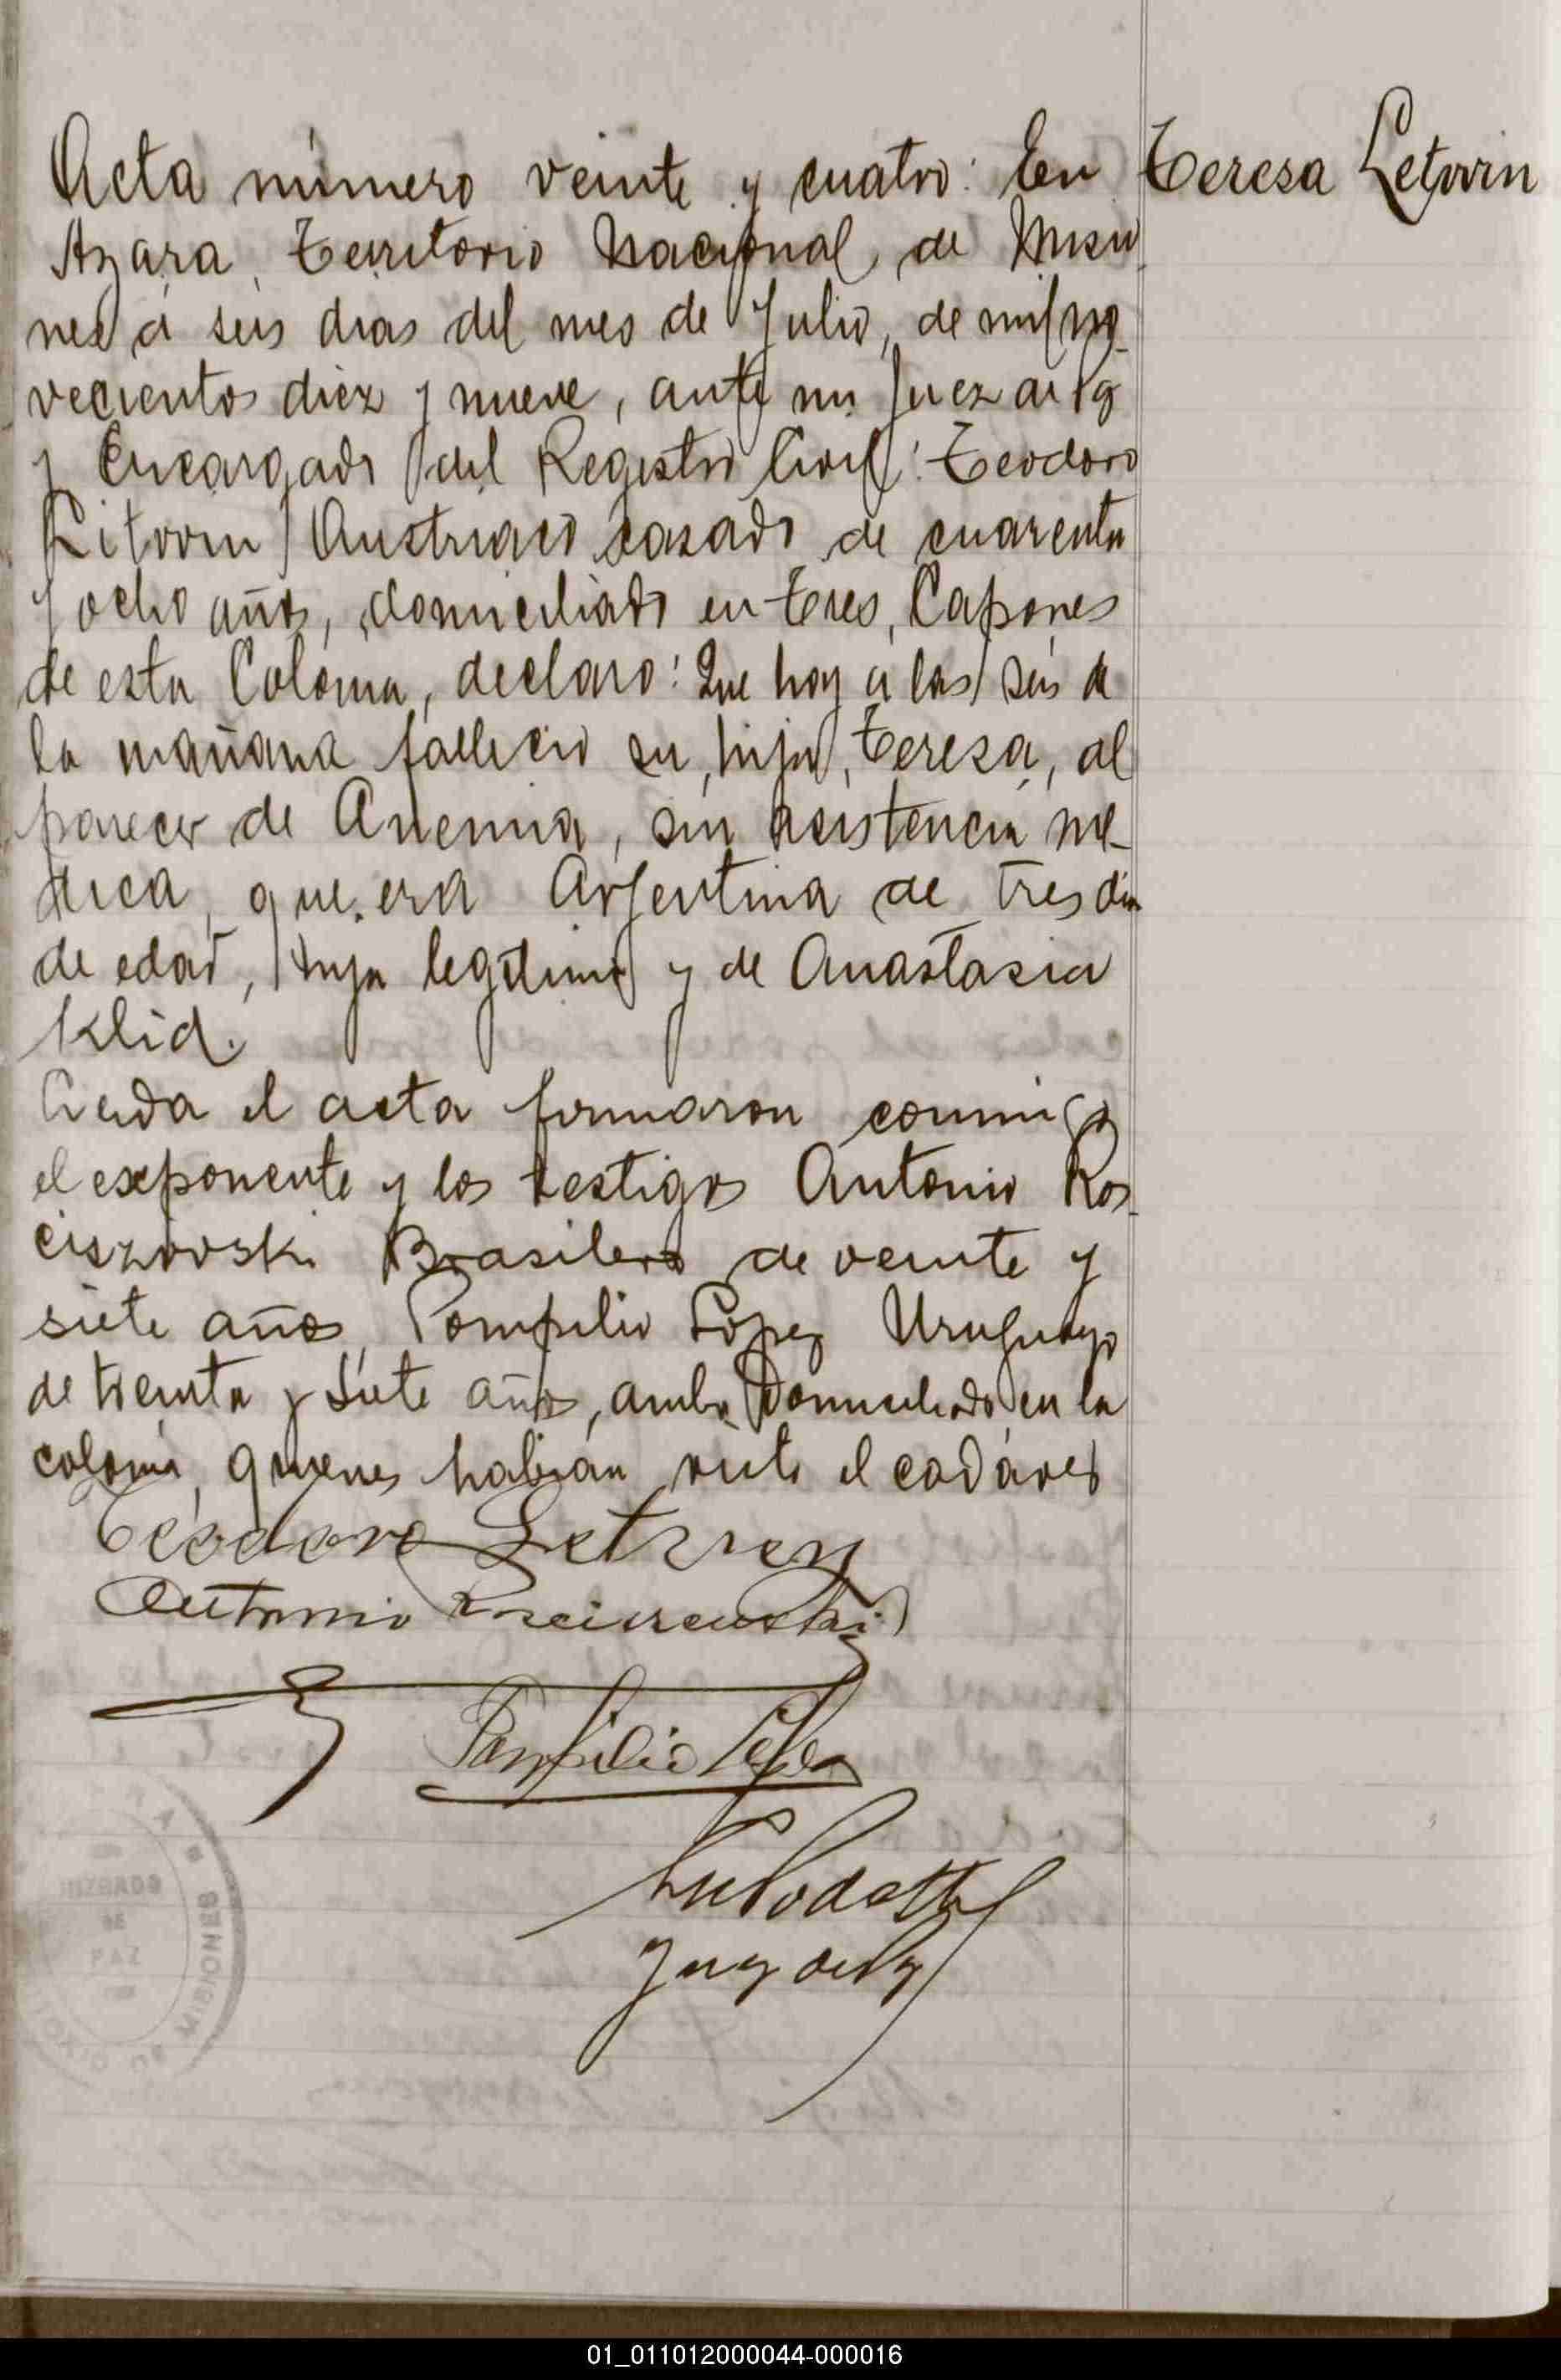 Acta número veinte y cuatro: En
Teresa Letvvin
Azara, Territorio Nacional, de Misio
nes á seis dias del mes de Julio, de mil no
vecientos diez y nueve, ante mi Juez de Pz
y Encargado del Registro Civil: Teodoro
Litvvin Austriaco casado de cuarenta
y ocho años, domiciliado en Tres Capones
de esta Colonia, declaro: Que hoy a las seis de
la mañana fallecio su hija, Teresa, al
parecer de Anemia, sin asistencia me-
dica, que era Argentina de tres dias
de edad, hija legitima y de Anastasia
Klid.
Leida el acta firmaron conmigo
el exponente y los testigos Antonio Ros
ciszovski Brasilero de veinte y
siete años, Pompilio Lopez Uruguayo
de treinta y siete años, ambos Domiciliados en la
colonia, quienes habian visto el cadaver
Teodoro
Antonio
Pompilio
JUZGADO
DE
PAZ
MISIONES
01_011012000044-000016